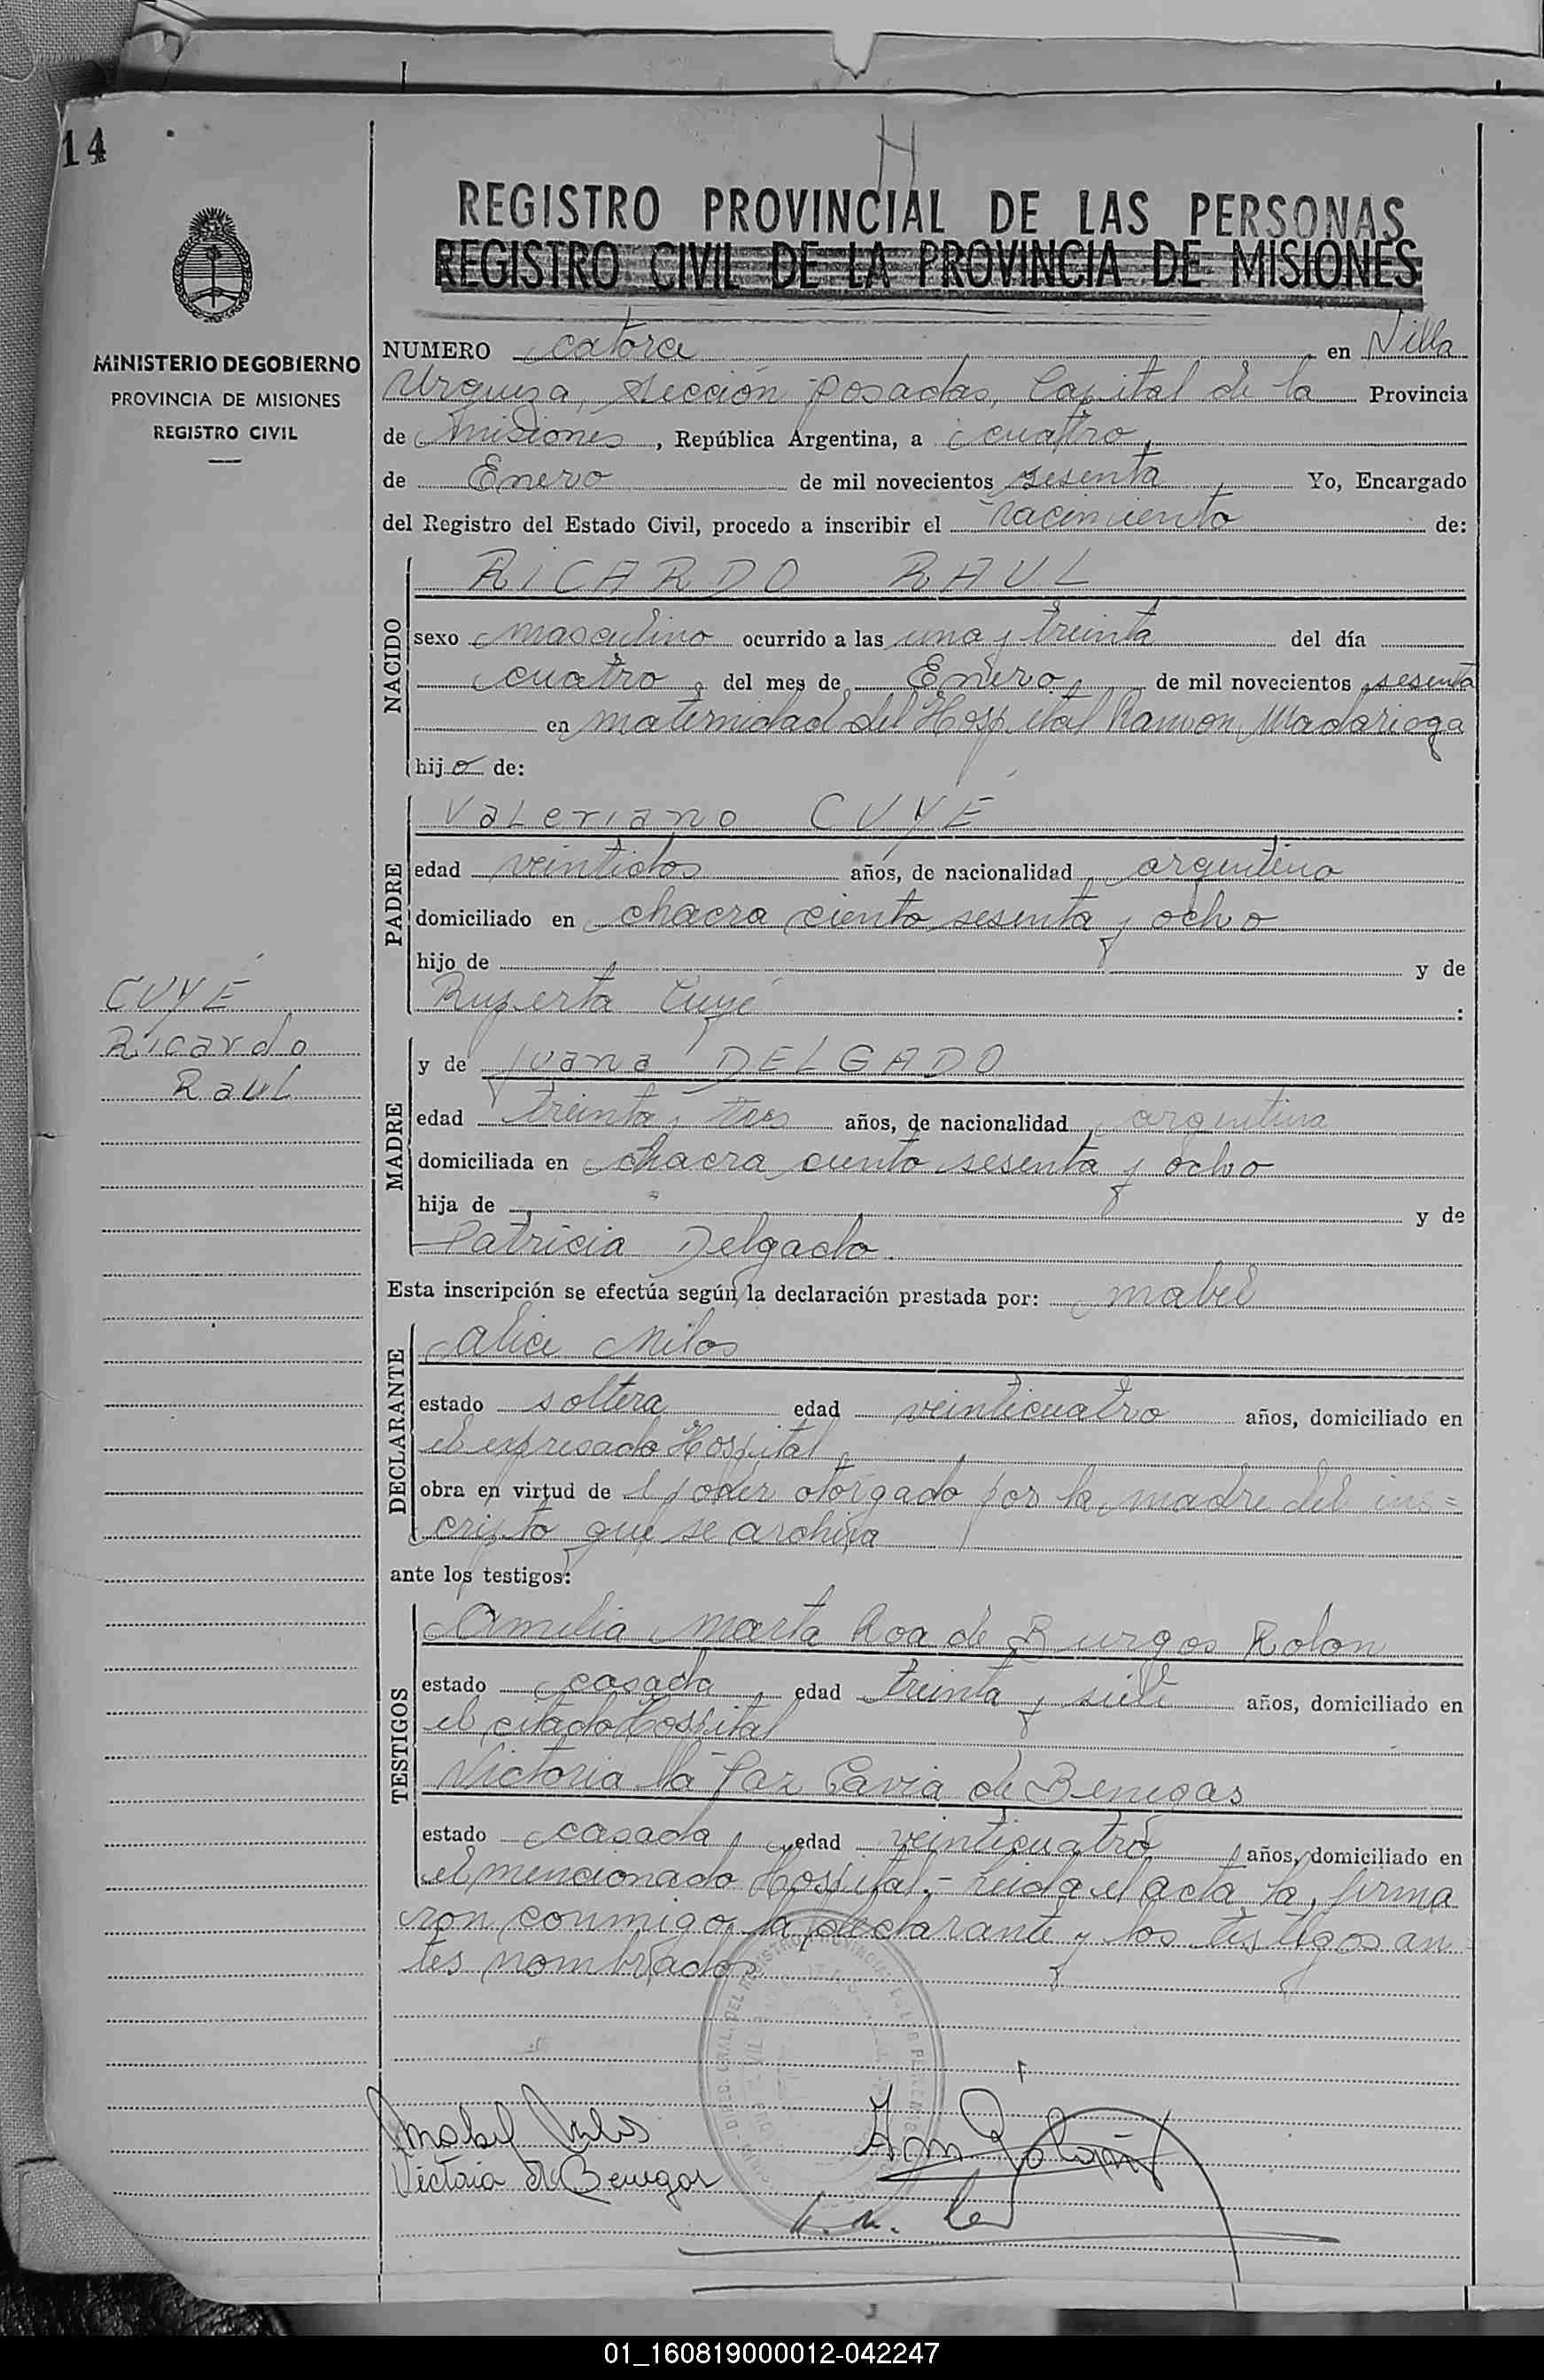 14
H
REGISTRO PROVINCIAL DE LAS PERSONAS
REGISTRO CIVIL DE LA PROVINCIA DE MISIONES
MINISTERIO DE GOBIERNO
PROVINCIA DE MISIONES
REGISTRO CIVIL
NUMERO catorce en Villa
Urquiza, sección posadas, Capital de la Provincia
de misiones, República Argentina, a cuatro,
de Enero de mil novecientos sesenta Yo, Encargado
del Registro del Estado Civil, procedo a inscribir el nacimiento de:
NACIDO
RICARDO RAUL
sexo masculino ocurrido a las una y treinta del día
cuatro, del mes de Enero, de mil novecientos sesenta
en maternidad del Hospital Ramon Madariaga
hijo de:
PADRE
Valeriano CUYÉ
edad veintidos años, de nacionalidad argentina
domiciliado en chacra ciento sesenta y ocho
hijo de y de
Ruperta Cuyé :
CUYÉ
Ricardo
Raul
MADRE
y de Juana DELGADO
edad treinta y tres años, de nacionalidad argentina
domiciliada en chacra ciento sesenta y ocho
hija de y de
Patricia Delgado.
Esta inscripción se efectúa según la declaración prestada por: mabel
DECLARANTE
alice Milos
estado soltera edad veinticuatro años, domiciliado en
el expresado Hospital,
obra en virtud de l poder otorgado por la madre del ins=
cripto que se archiva
ante los testigos:
TESTIGOS
Amelia Marta Roa de Burgos Rolon
estado casada edad treinta y siete años, domiciliado en
el citado Hospital
Victoria la Paz Cavia de Benegas
estado casada, edad veinticuatro, años, domiciliado en
el mencionado Hospital.- Leida el acta la, firma
ron conmigo, la declarante y los testigos an
tes nombrados
Mabel Milos
Victoria de Benegas
01_160819000012-042247